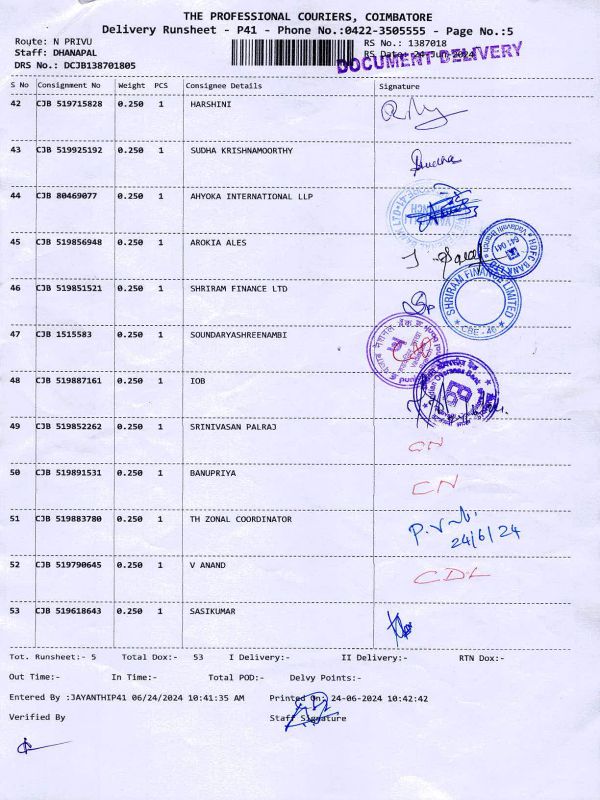 THE PROFESSIONAL COURIERS, COIMBATORE
Delivery Runsheet - P41 - Phone No.:0422-3505555 - Page No.:5
Route: N PRIVU RS No.: 1387018
Staff: DHANAPAL RS Date: 24-Jun-2024
DOCUMENT DELIVERY
DRS No.: DCJB138701805
S No Consignment No Weight PCS Consignee Details Signature
42 CJB 519715828 0.250 1 HARSHINI
43 CJB 519925192 0.250 1 SUDHA KRISHNAMOORTHY
44 CJB 80469077 0.250 1 AHYOKA INTERNATIONAL LLP
45 CJB 519856948 0.250 1 AROKIA ALES
HDFC BANK LTD
641 041
46 CJB 519851521 0.250 1 SHRIRAM FINANCE LTD
SHRIRAM FINANCE LIMITED
CBE - 46
47 CJB 1515583 0.250 1 SOUNDARYASHREENAMBI
48 CJB 519887161 0.250 1 IOB
Indian Overseas Bank
49 CJB 519852262 0.250 1 SRINIVASAN PALRAJ
50 CJB 519891531 0.250 1 BANUPRIYA CN
51 CJB 519883780 0.250 1 TH ZONAL COORDINATOR
24/6/24
52 CJB 519790645 0.250 1 V ANAND CDL
53 CJB 519618643 0.250 1 SASIKUMAR
Tot. Runsheet:- 5 Total Dox:- 53 I Delivery:- II Delivery:- RTN Dox:-
Out Time:- In Time:- Total POD:- Delvy Points:-
Entered By :JAYANTHIP41 06/24/2024 10:41:35 AM Printed On: 24-06-2024 10:42:42
Verified By Staff Signature